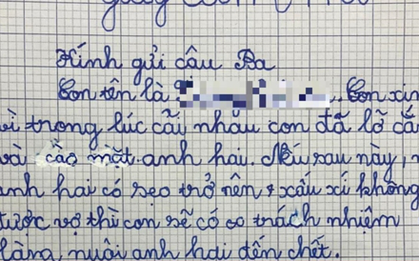 Kính gửi câu Ba
Con tên là Con xin
vì trong lúc cãi nhau con đã lỡ cắ
và cào mặt anh hai. Nếu sau này,
anh hai có sẹo trở nên xấu xí không
được vợ thì con sẽ có trách nhiệm
làng, nuôi anh hai đến chết.